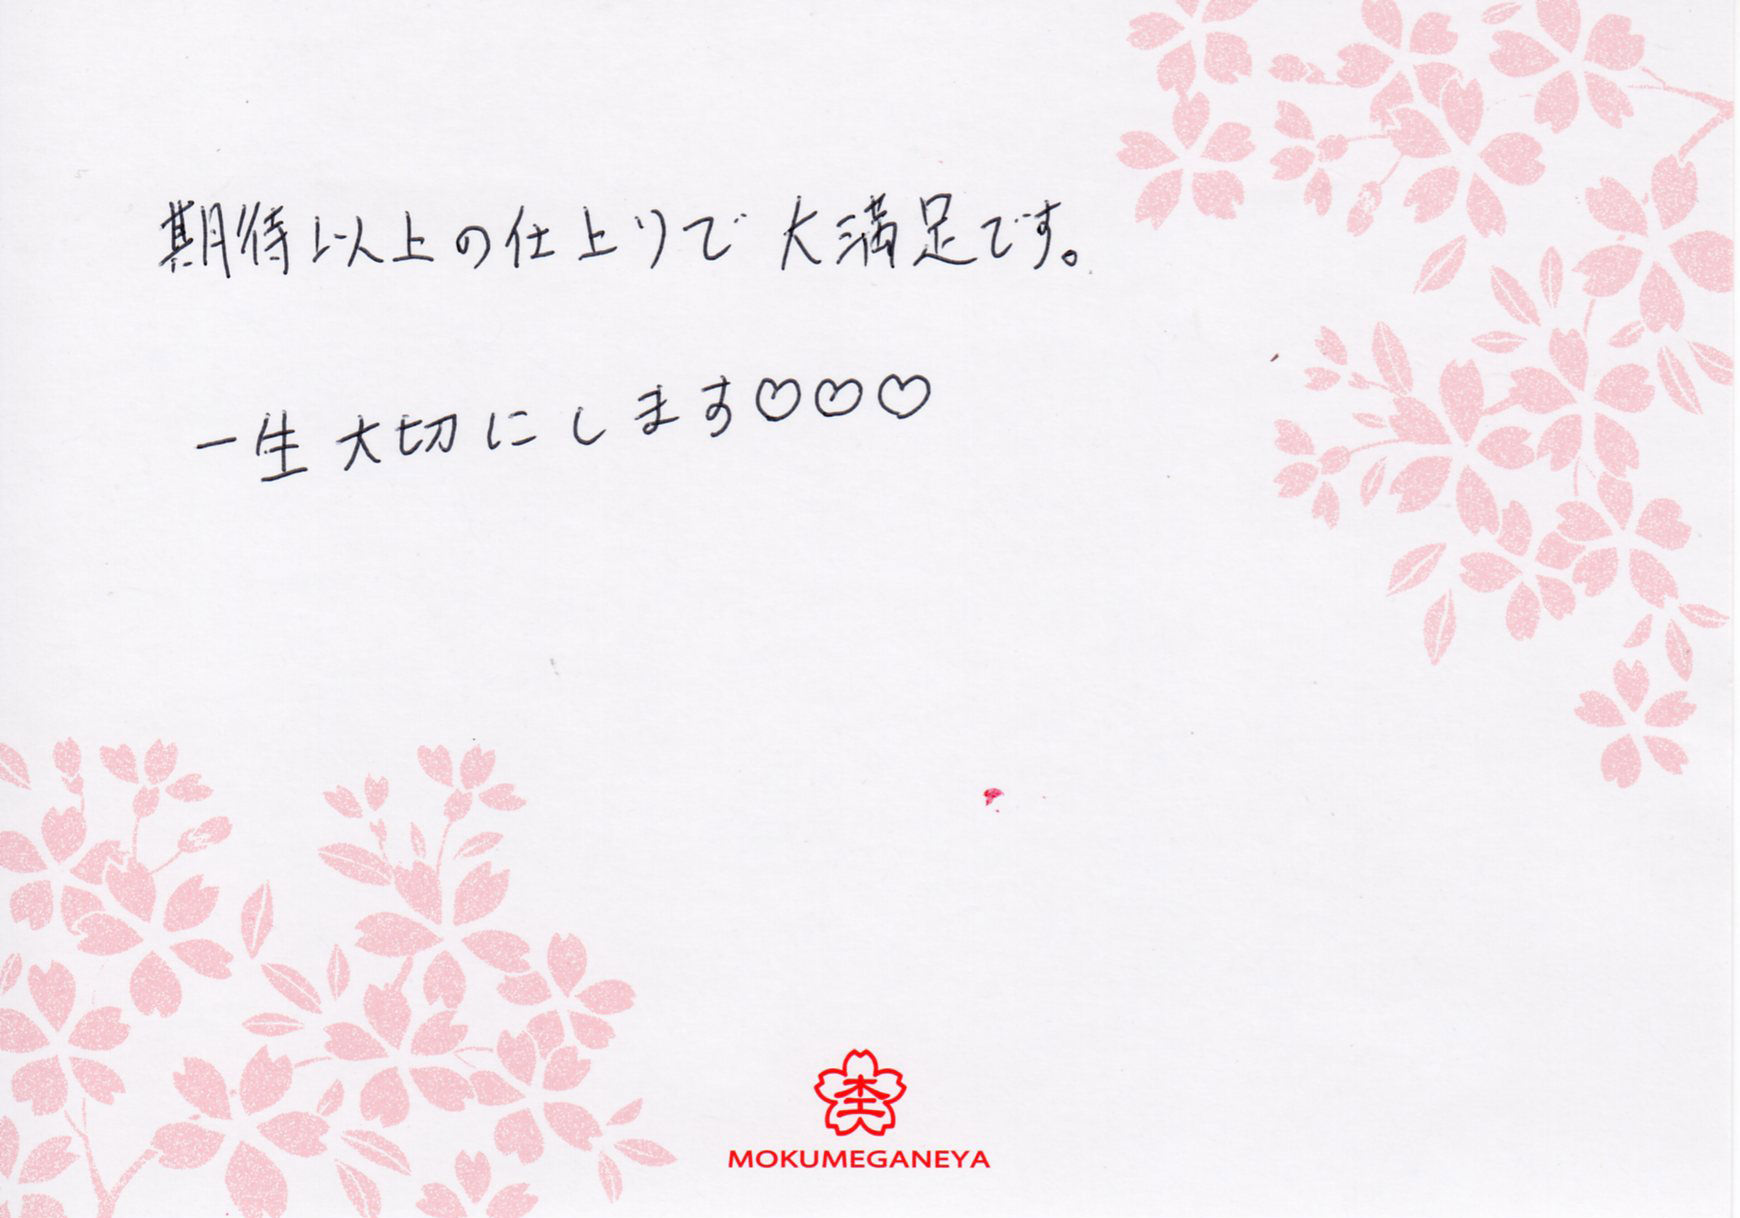 期待以上の仕上りで大満足です。
一生大切にします♡♡♡
杢
MOKUMEGANEYA